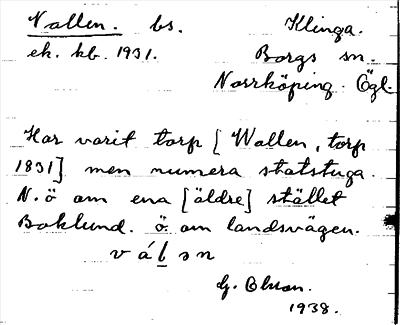 Vallen. bs. Klinga.
ek. kb. 1931. Borgs sn.
Norrköping. Ögl.
Har varit torp [Wallen, torp
1831] men numera statstuga.
N.ö om ena [äldre] stället
Boklund. ö. om landsvägen.
v á l ə n
G. Olson.
1938.